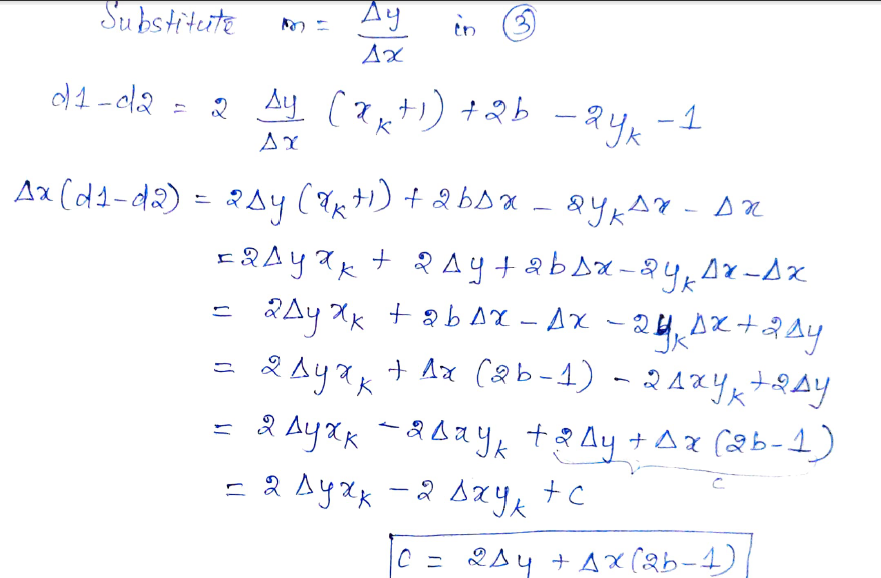 Substitute m = Δy/Δx in ③
d1-d2 = 2 Δy/Δx (x_k+1) + 2b - 2y_k - 1
Δx(d1-d2) = 2Δy(x_k+1) + 2bΔx - 2y_kΔx - Δx
= 2Δy x_k + 2Δy + 2bΔx - 2y_k Δx - Δx
= 2Δy x_k + 2bΔx - Δx - 2y_k Δx + 2Δy
= 2Δy x_k + Δx (2b-1) - 2Δx y_k + 2Δy
= 2Δy x_k - 2Δx y_k + 2Δy + Δx (2b-1)
c
= 2Δy x_k - 2Δx y_k + c
c = 2Δy + Δx(2b-1)